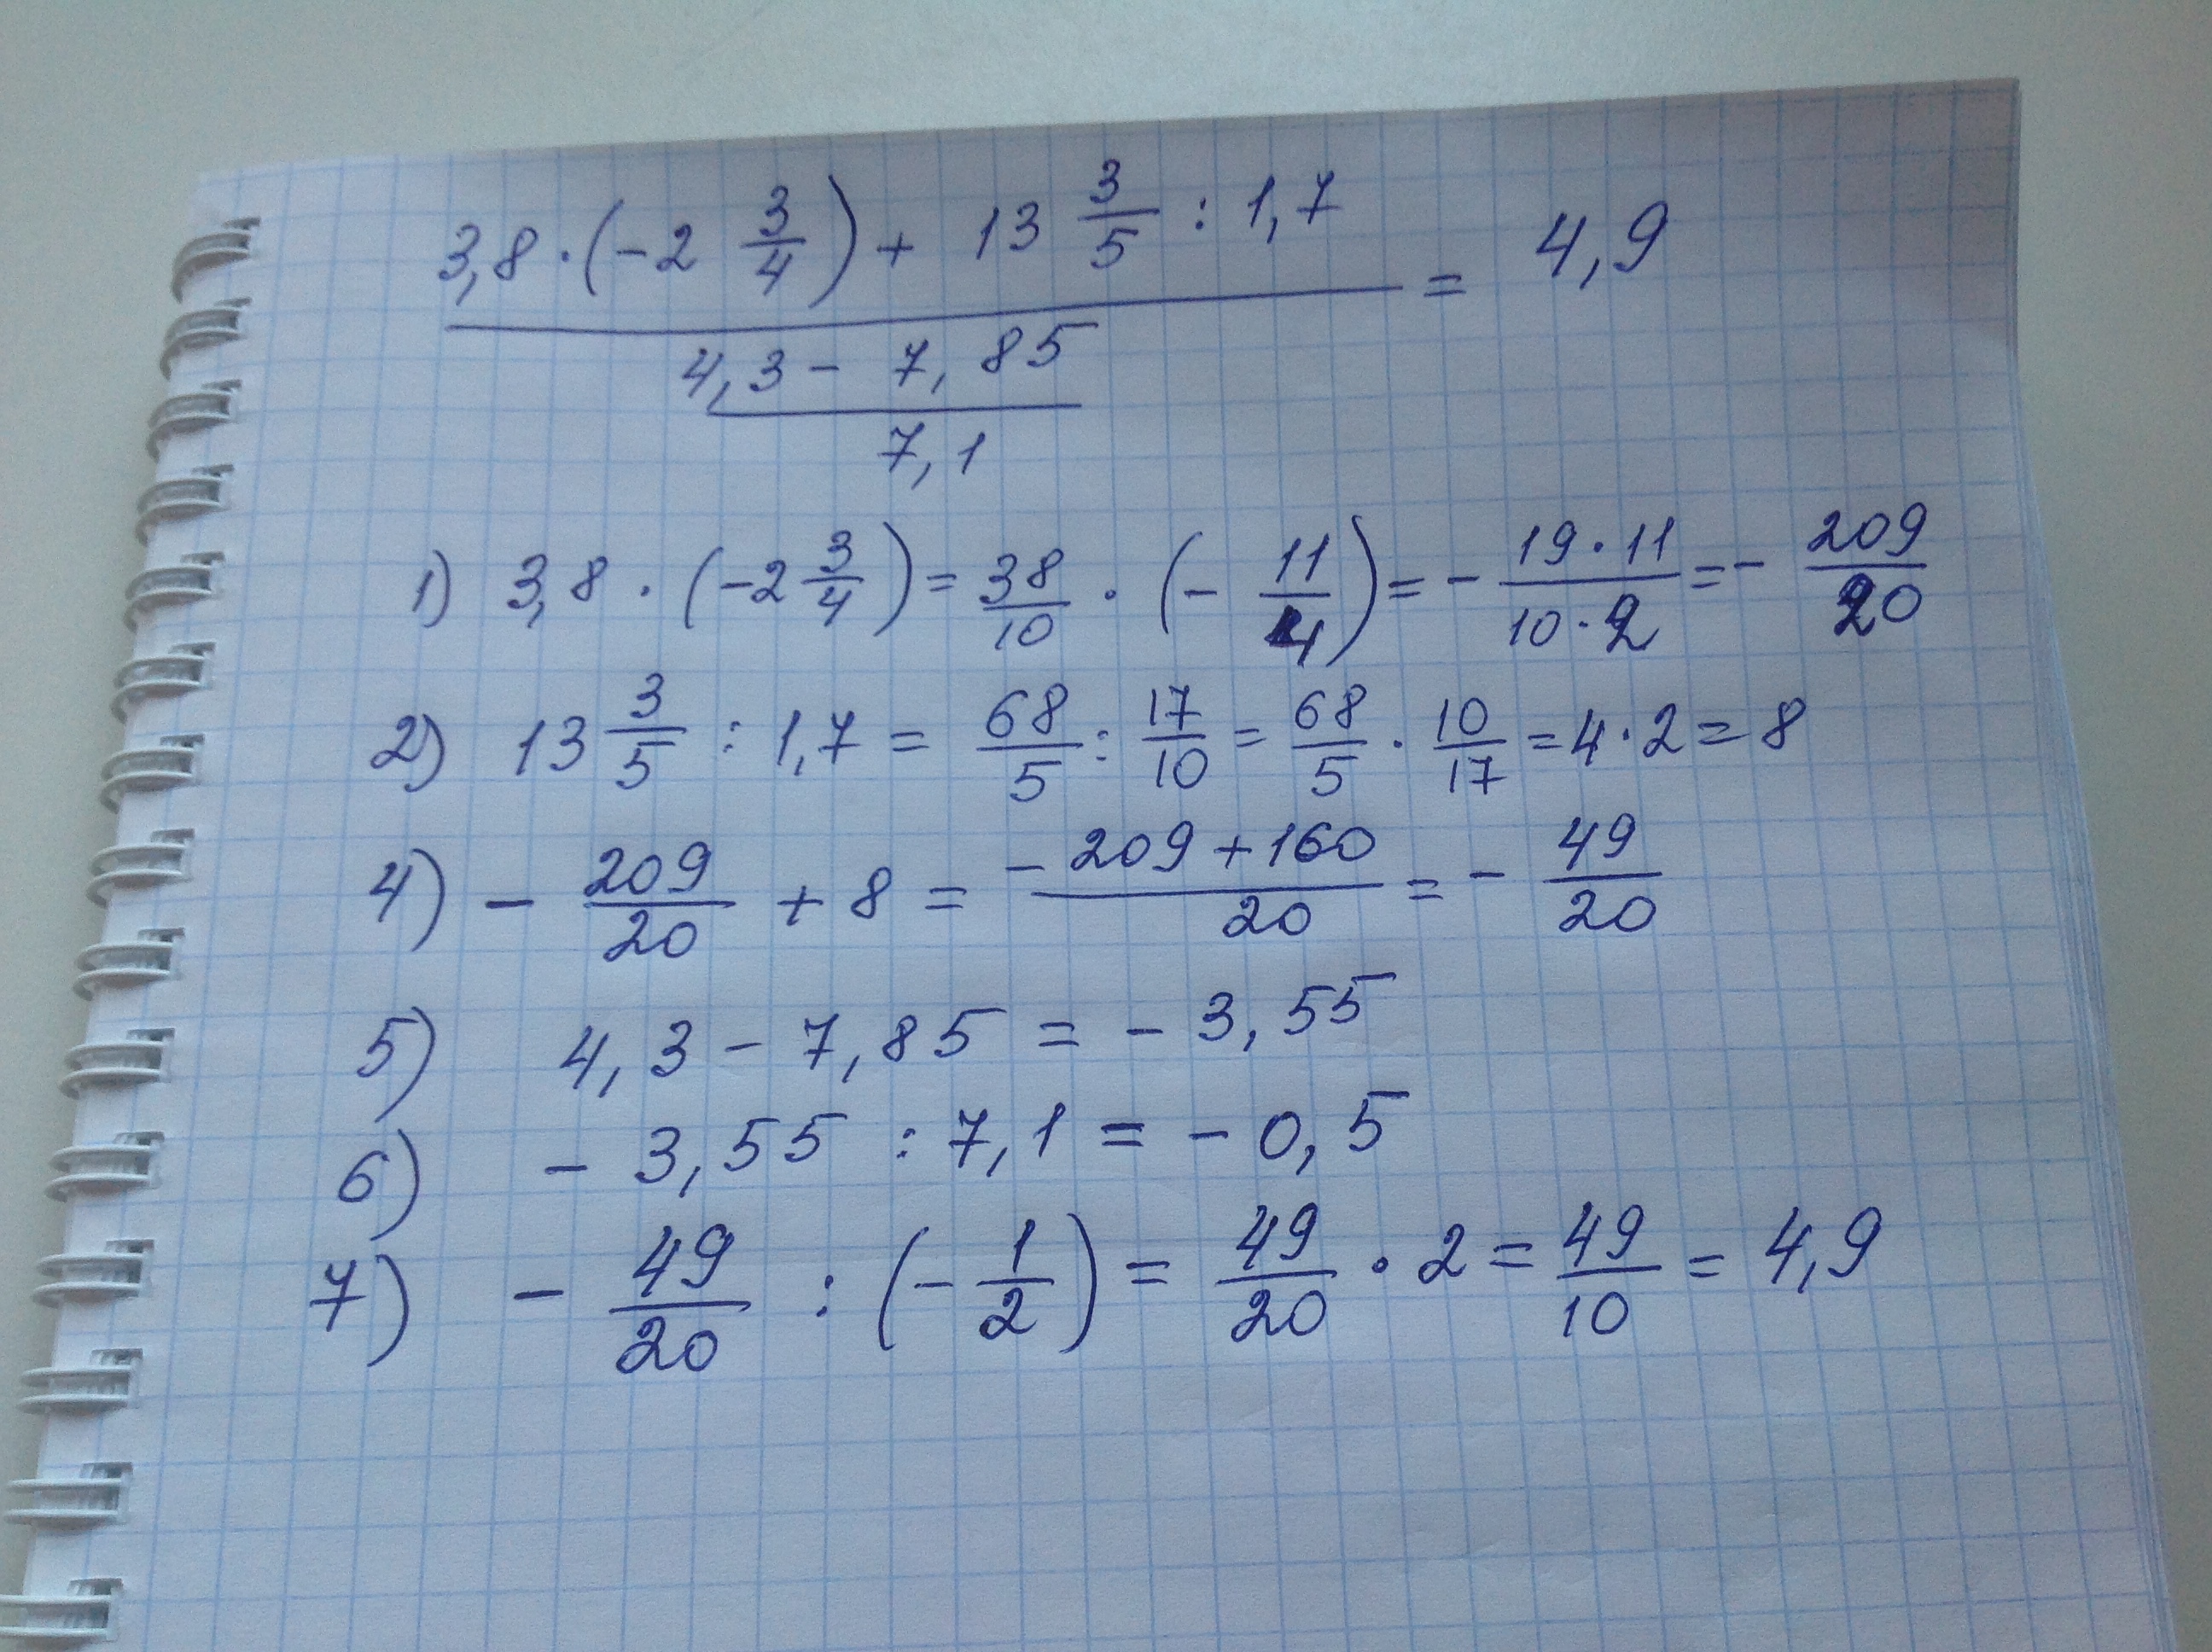 3,8 · (-2 3/4) + 13 3/5 : 1,7 = 4,9
4,3 - 7,85
7,1
1) 3,8 · (-2 3/4) = 38/10 · (- 11/4) = - 19·11/10·2 = - 209/20
2) 13 3/5 : 1,7 = 68/5 : 17/10 = 68/5 · 10/17 = 4·2 = 8
4) - 209/20 + 8 = -209+160/20 = - 49/20
5) 4,3 - 7,85 = - 3,55
6) - 3,55 : 7,1 = - 0,5
7) - 49/20 : (- 1/2) = 49/20 · 2 = 49/10 = 4,9